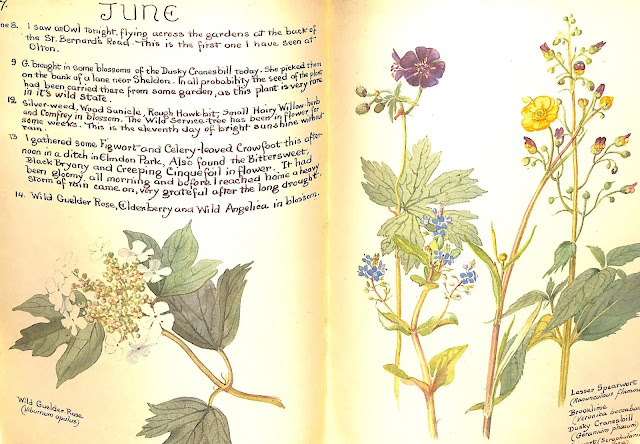 JUNE
ne 8. I saw an Owl tonight, flying across the gardens at the back of
the St. Bernard's Road. This is the first one I have seen at
Olton.
9 G. brought in some blossoms of the Dusky Cranesbill today. She picked them
on the bank of a lane near Sheldon. In all probability the seed of the plant
had been carried there from some garden, as this plant is very rare
in it's wild state.
12. Silver-weed, Wood Sanicle, Rough Hawk-bit; Small Hairy Willow-herb
and Comfrey in blossom. The Wild Service-tree has been in flower for
some weeks. This is the eleventh day of bright sunshine without
rain.
13 I gathered some Figwort and Celery-leaved Crowfoot this after-
noon in a ditch in Elmdon Park, Also found the Bittersweet,
Black Bryony and Creeping Cinquefoil in flower. It had
been gloomy all morning and before I reached home a heavy
storm of rain came on, very grateful after the long drought.
14. Wild Guelder Rose, Elderberry and Wild Angelica in blossom.
Wild Guelder Rose.
(Viburnum opulus)
Lesser Spearwort
(Ranunculus flamm
Brooklime
(Veronica beccabu
Dusky Cranesbill
(Geranium phaeum)